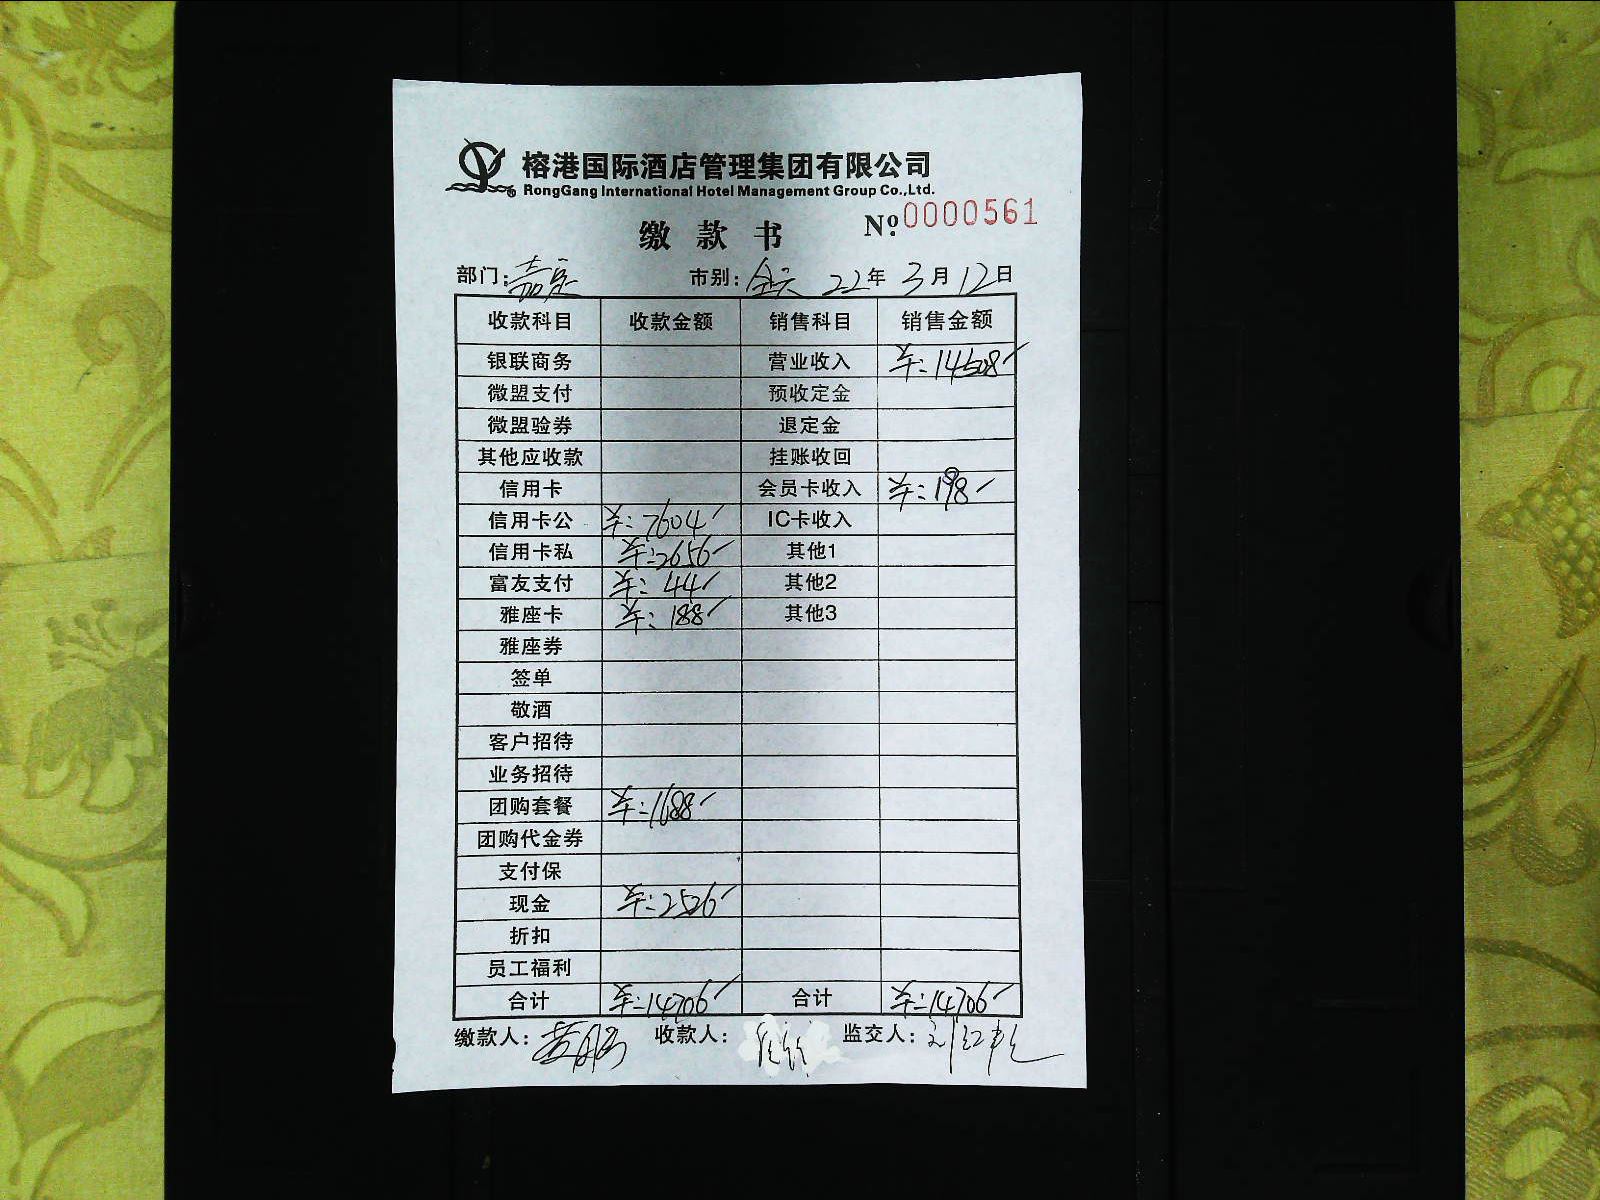 榕港国际酒店管理集团有限公司
RongGang International Hotel Management Group Co.,Ltd.
缴款书 No:0000561
部门:嘉定 市别:全天 22年 3月12日
收款科目 收款金额 销售科目 销售金额
银联商务 营业收入 ¥:14508
微盟支付 预收定金
微盟验券 退定金
其他应收款 挂账收回
信用卡 会员卡收入 ¥:198
信用卡公 ¥:7604 IC卡收入
信用卡私 ¥:2656 其他1
富友支付 ¥:44 其他2
雅座卡 ¥:188 其他3
雅座券
签单
敬酒
客户招待
业务招待
团购套餐 ¥:1688
团购代金券
支付保
现金 ¥:2526
折扣
员工福利
合计 ¥:14706 合计 ¥:14706
缴款人: 收款人: 监交人: